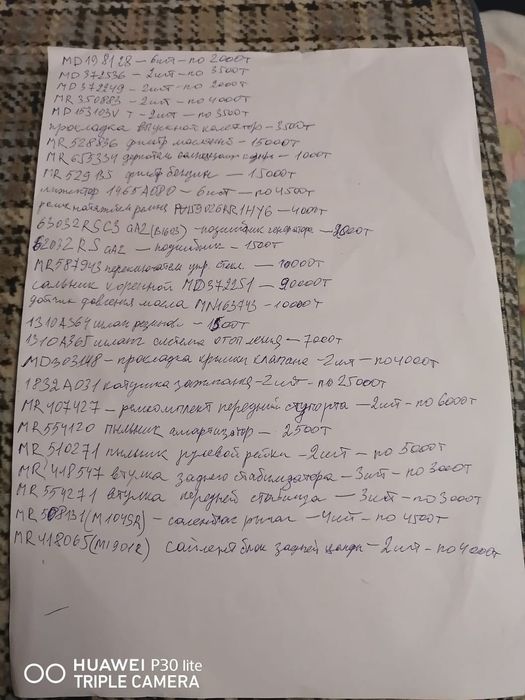 MD198128 – 6шт – по 2000т
MD372536 – 2шт – по 3500т
MD372249 – 2шт – по 2000т
MR350883 – 2шт – по 4000т
MD153103V т – 2шт – по 3500т
прокладка впускной колектор – 3500т
MR528836 фильтр масленый – 15000т
MR655334 – 1000т
MR529135 фильтр бензин – 15000т
инжектор 1465A080 – 6шт – по 4500т
ремень 1HY6 – 4000т
63032RSC3 GA2 (B1603) – подшибник генератора –
62032RS GA2 – подшибник – 1500т
MR587943 переключатель упр. стекл. – 10000т
сальник коренной MD372251 – 90000т
датчик давления масла MN163743 – 10000т
1310A364 шланг резинов – 1500т
1310A365 шланг система отопления – 7000т
MD303148 – прокладка крышки клапана – 2шт – по 4000т
1832A031 катушка зажигания – 2шт – по 25000т
MR407427 – ремкомплект передний суппорта – 2шт – по 6000т
MR554120 пыльник амартизатор – 2500т
MR510271 пыльник рулевой рейки – 2шт – по 5000т
MR418547 втулка заднего стабилизатора – 3шт – по 3000т
MR554271 втулка передней – 3шт – по 3000т
MR508131 (M1045R) – рычаг – 4шт – по 4500т
MR418065 (M1901R) сайлентблок задней – 2шт – по 4000т
HUAWEI P30 lite
TRIPLE CAMERA